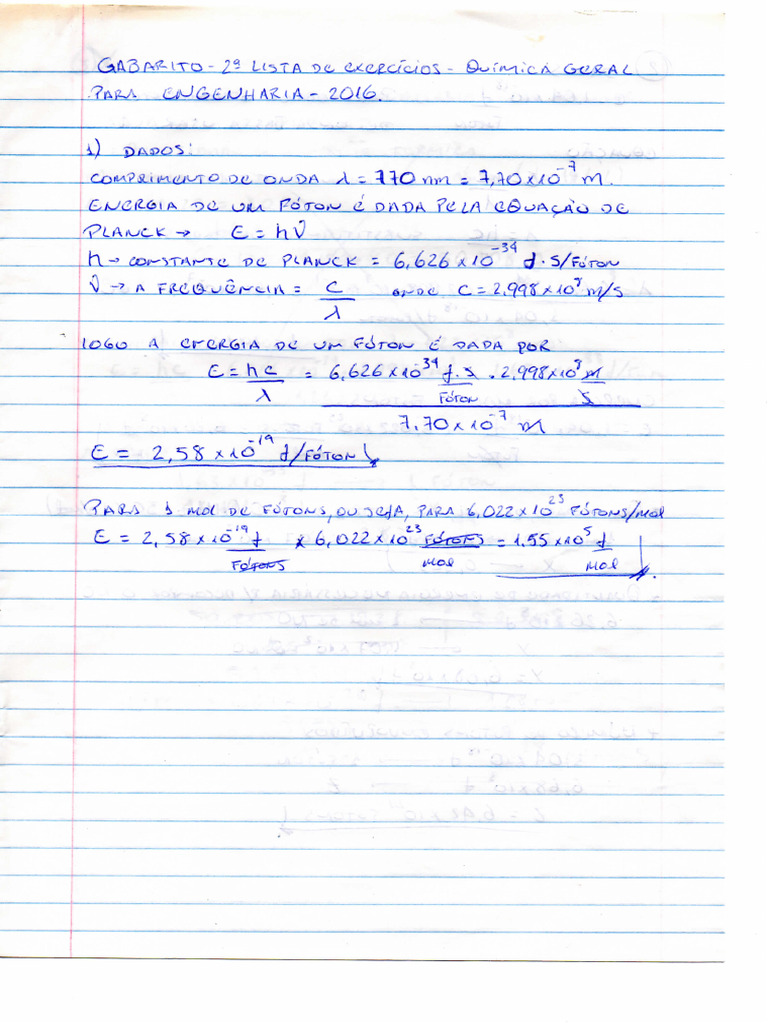 GABARITO - 2ª LISTA DE EXERCÍCIOS - QUÍMICA GERAL
PARA ENGENHARIA - 2016.
1) DADOS:
COMPRIMENTO DE ONDA λ = 770 nm = 7,70 x 10⁻⁷ m.
ENERGIA DE UM FÓTON É DADA PELA EQUAÇÃO DE
PLANCK → E = hν
h → CONSTANTE DE PLANCK = 6,626 x 10⁻³⁴ J·S/FÓTON
ν → A FREQUÊNCIA = C/λ ONDE C = 2,998 x 10⁸ m/s
LOGO A ENERGIA DE UM FÓTON É DADA POR
E = hC/λ = 6,626 x 10⁻³⁴ J.S/FÓTON . 2,998 x 10⁸ m/S
7,70 x 10⁻⁷ m
E = 2,58 x 10⁻¹⁹ J/FÓTON
PARA 1 MOL DE FÓTONS, OU SEJA, PARA 6,022 x 10²³ FÓTONS/MOL
E = 2,58 x 10⁻¹⁹ J/FÓTONS x 6,022 x 10²³ FÓTONS/MOL = 1,55 x 10⁵ J/MOL.